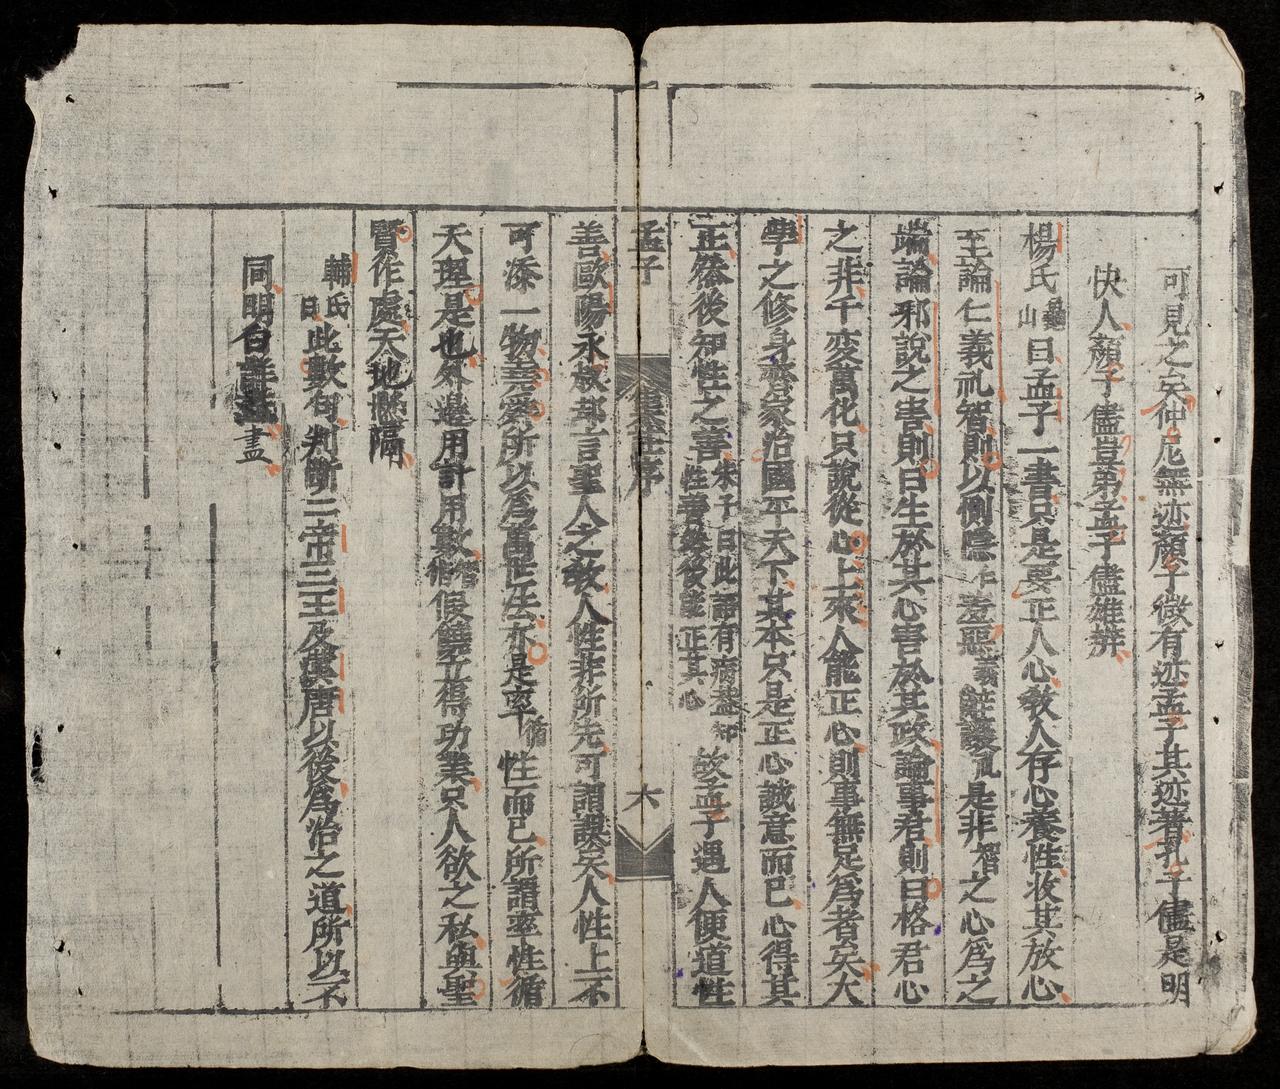 可見之矣仲尼無迹顔子微有迹孟子其迹著孔子儘是明
快人顔子儘豈弟孟子儘雄辨
楊氏龜山曰孟子一書只是要正人心教人存心養性收其放心
至論仁義礼智則以惻隱仁羞惡義辞讓礼是非智之心爲之
端論邪說之害則曰生於其心害於其政論事君則曰格君心
之非千変萬化只說從心上來人能正心則事無足爲者矣大
學之修身齊家治國平天下其本只是正心誠意而已心得其
正然後知性之善朱子曰此語有病盖知性善然後能正其心故孟子遇人便道性
孟子 集註序 六
善歐陽永叔却言聖人之教人性非所先可謂誤矣人性上不
可添一物堯舜所以爲萬世法亦是率循性而已所謂率性循
天理是也外邊用計用數智術假饒立得功業只人欲之私與聖
賢作處天地懸隔
輔氏曰此數句判斷二帝三王及漢唐以後爲治之道所以不
同明白詳盡